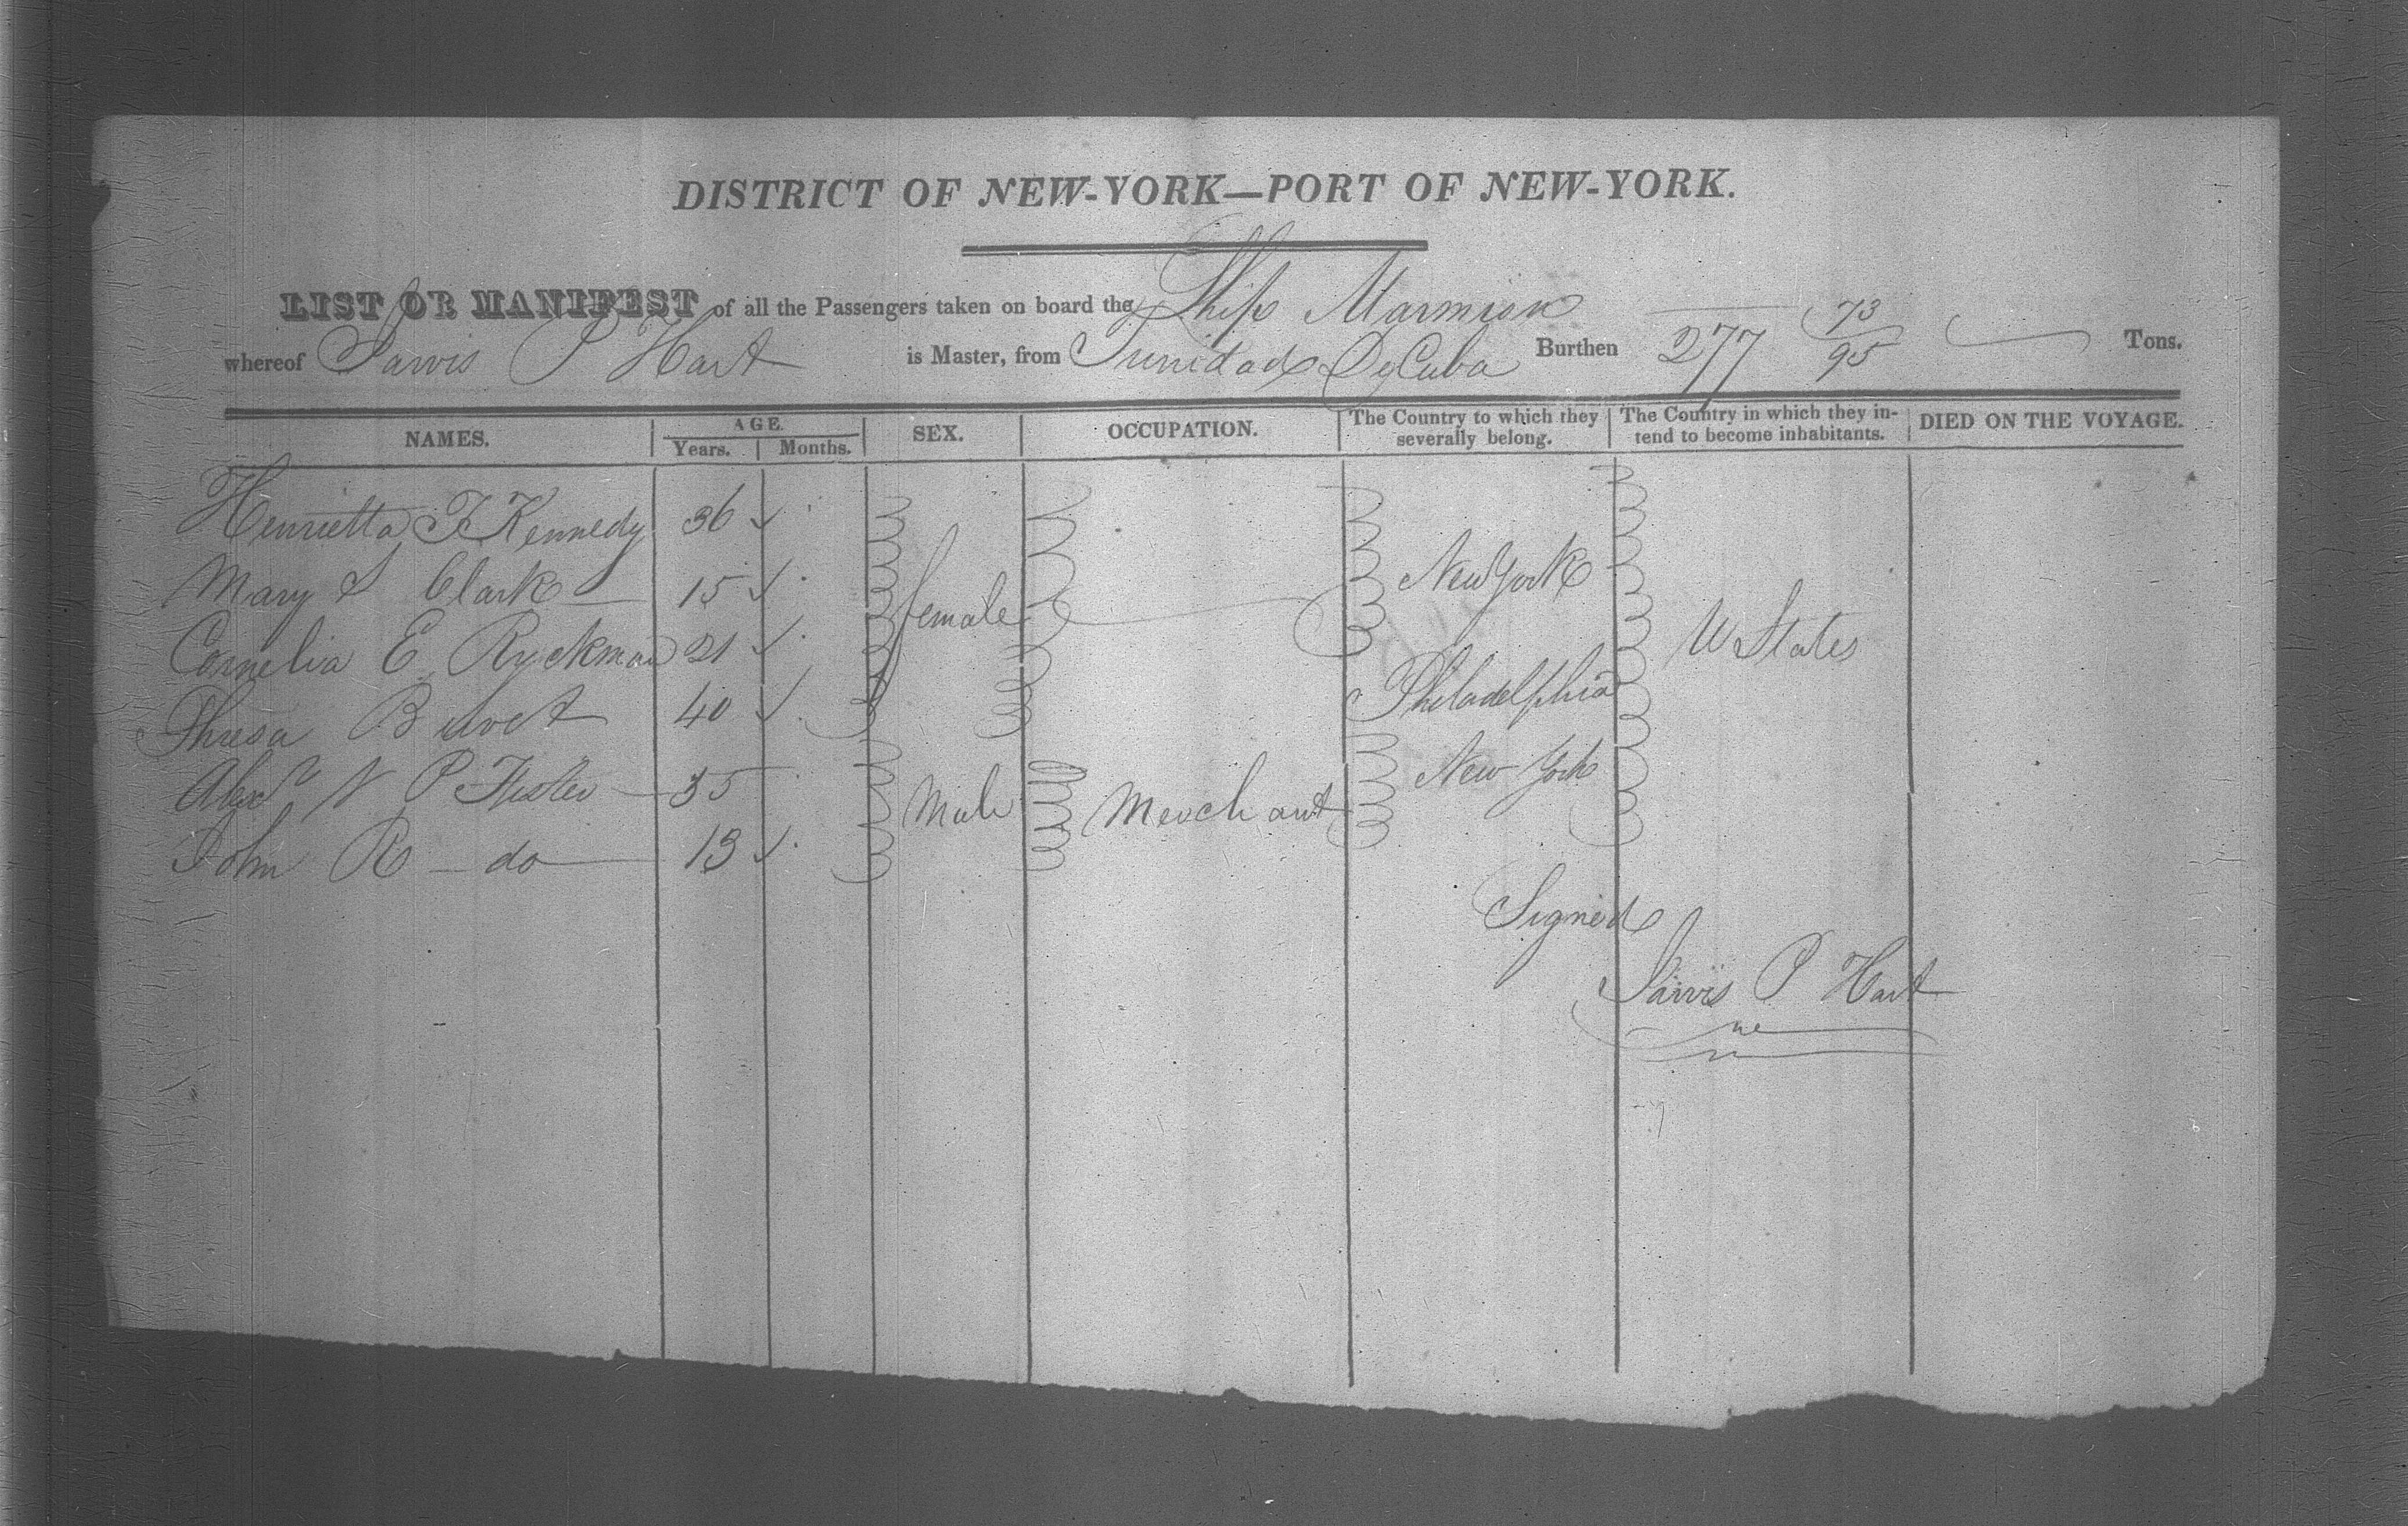 DISTRICT OF NEW-YORK—PORT OF NEW-YORK.
LIST OR MANIFEST of all the Passengers taken on board the Ship Marmion
whereof Jarvis P Hart is Master, from Trinidad De Cuba Burthen 277 73/95 Tons.
NAMES. AGE. Years. Months. SEX. OCCUPATION. The Country to which they severally belong. The Country in which they intend to become inhabitants. DIED ON THE VOYAGE.
Henrietta F Kennedy 36
Mary S Clark 15 New York
Cornelia E Ryckman 21 female U States
Thresa 40 Philadelphia
Alexr N P 35 New York
John R do 13 Male Merchant
Signed
Jarvis P Hart